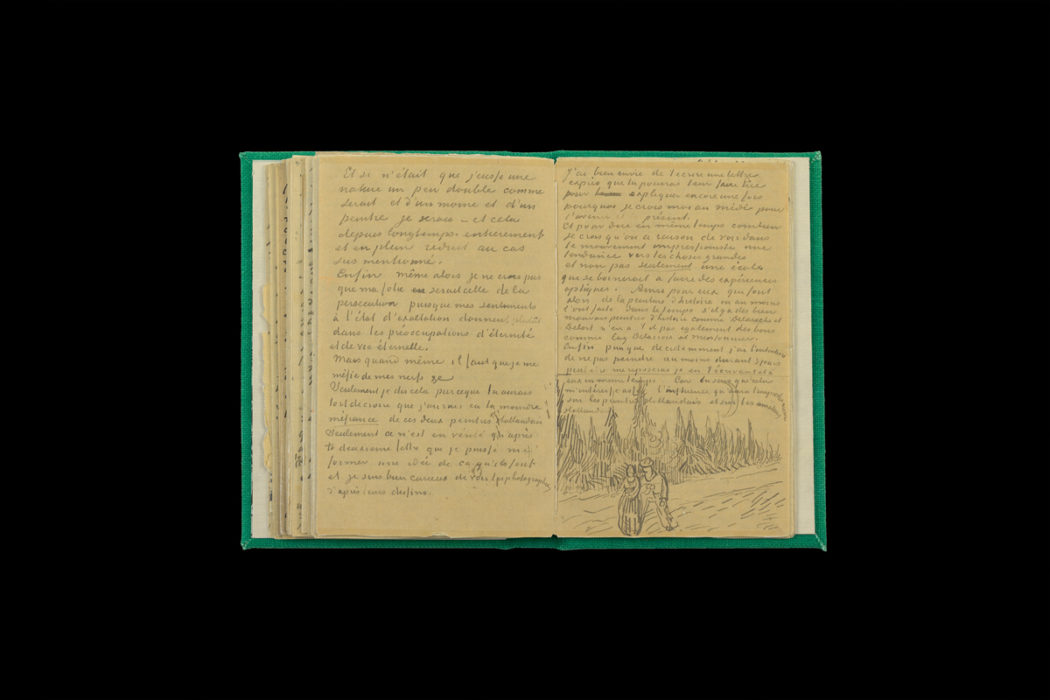 Et si n'était que j'eusse une
nature un peu double comme
serait et d'un moine et d'un
peintre je serais – et cela
depuis longtemps entierement
et en plein reduit au cas
sus mentionné.
Enfin même alors je ne crois pas
que ma folie serait celle de la
persecution puisque mes sentiments
à l'état d'exaltation donnent
dans les préoccupations d'éternité
et de vie éternelle.
Mais quand même il faut que je me
méfie de mes nerfs &c
Seulement je dis cela parceque tu aurais
tort de croire que j'aurais eu la moindre
méfiance de ces deux peintres Hollandais
Seulement ce n'est en vérité qu'après
ta deuxieme lettre que je puisse me
former une idée de ce qu'ils font
et je suis bien curieux de voir les photographies
d'après leurs dessins.
J'ai bien envie de t'ecrire une lettre
exprès que tu pourras leur faire lire
pour expliquer encore une fois
pourquoi je crois moi au midi pour
l'avenir et présent.
Et pour dire en même temps combien
je crois qu'on a raison de voir dans
le mouvement impressioniste une
tendance vers les choses grandes
et non pas seulement une école
que se bornerait à faire des expériences
optiques. Ainsi pour eux qui font
alors de la peinture d'histoire ou au moins
l'ont faite dans le temps s'il y a des bien
mauvais peintres d'histoire comme Delaroche et
Delort n'en a t il pas egalement des bons
comme Eug Delacroix et Meissonier.
Enfin puisque decidemment j'ai l'intention
de ne pas peindre au moins durant 3 jours
peut être me reposerai je en t'ecrivant et à
eux en meme temps. Car tu sais que cela
m'intéresse assez l'influence qu'aura l'impressionisme
sur les peintres Hollandais et sur les amateurs
Hollandais